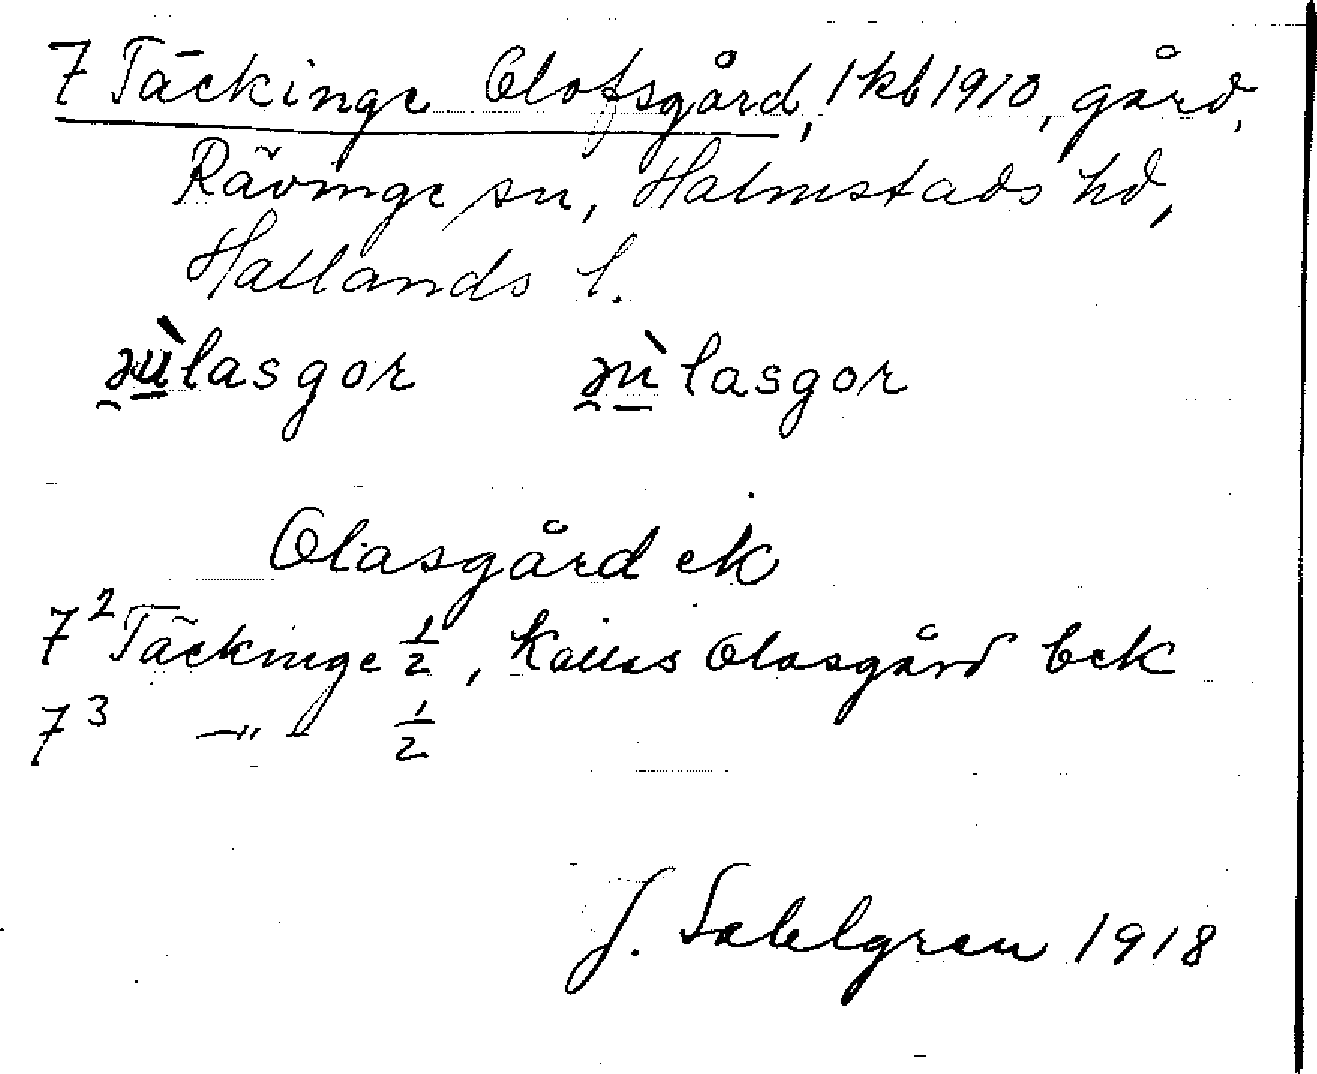 7 Täckinge Olofsgård, 1 kb 1910, gård,
Rävinge sn, Halmstads hd,
Hallands l.
lasgor lasgor
Olasgård ek
7² Täckinge ½, kallas Olasgård bek
7³ –"– ½
J. Sahlgren 1918